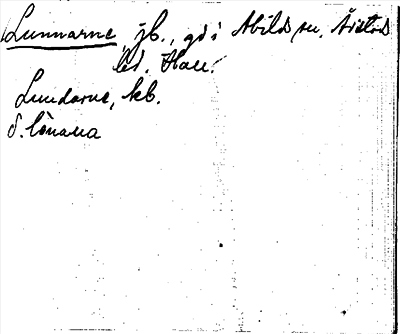 Lunnarne, jb., gd i Abild sn, Årstad
hd. Hall.
Lundarne, kb.
S. lònana